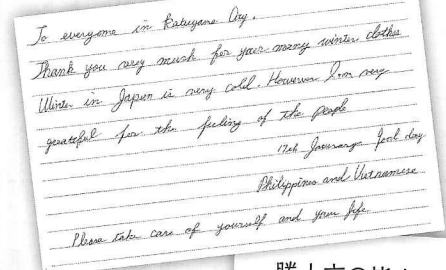 To everyone in Katsuyama City.
Thank you very much for your many winter clothes
Winter in Japan is very cold. However I'm very
greatful for the feeling of the people
17th January good day
Philippines and Vietnamese
Please take care of yourself and your life
勝山市の皆